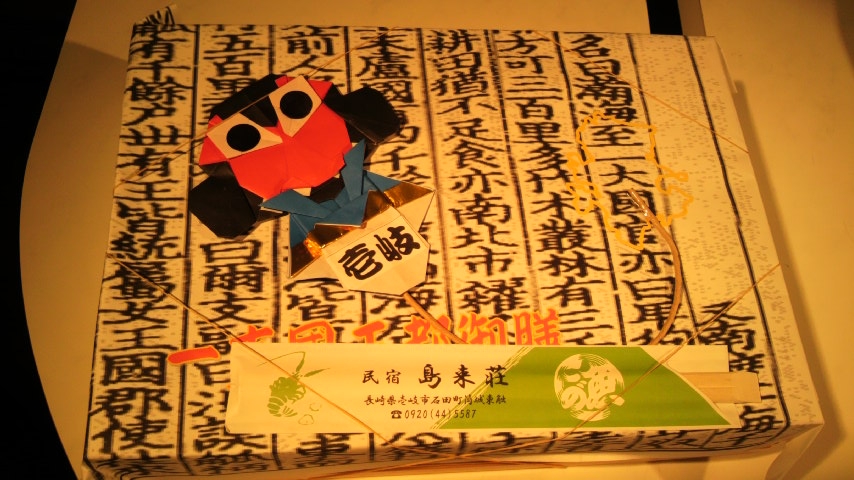 又南渡
海
名曰瀚海至一大國官亦曰卑
方可三百里多竹木叢林有三
耕田猶不足食亦南北市糴
末盧國
海
前人
皆
五百里
曰爾支
有千餘戸丗有王皆統属女王國郡使
壱岐
一支国王都御膳
民宿 島来荘
長崎県壱岐市石田町筒城東触
☎0920(44)5587